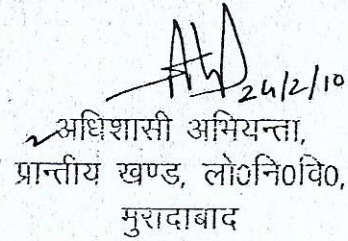 24/2/10
अधिशासी अभियन्ता,
प्रान्तीय खण्ड, लो०नि०वि०,
मुरादाबाद